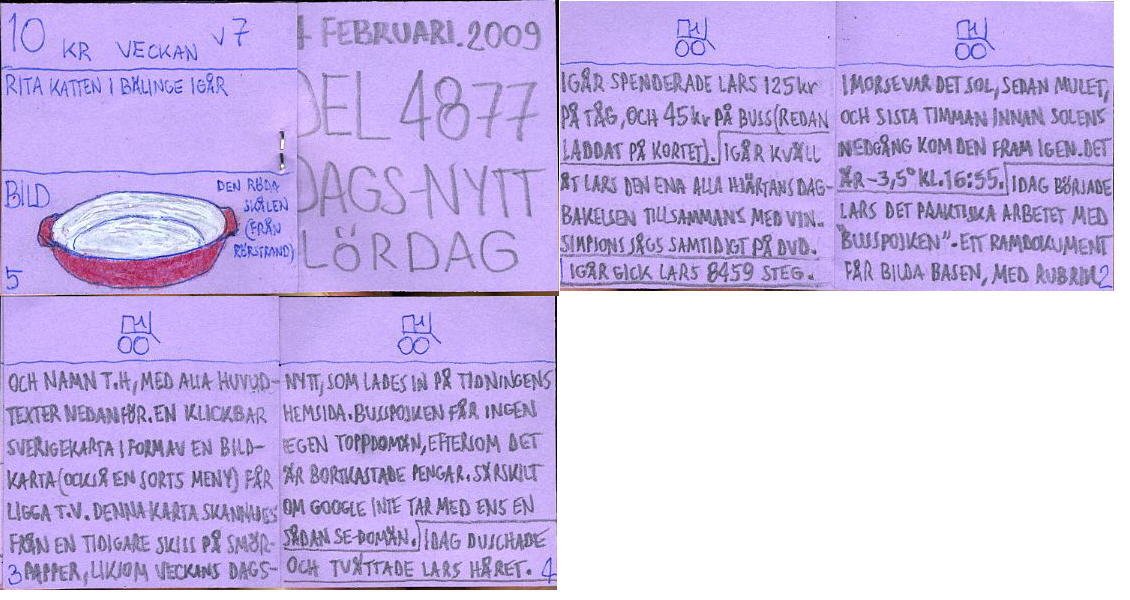 10 KR VECKAN V7
RITA KATTEN I BÄLINGE IGÅR
BILD
DEN RÖDA
SKÅLEN
(FRÅN
RÖRSTRAND)
5
4 FEBRUARI. 2009
DEL 4877
DAGS-NYTT
LÖRDAG
IGÅR SPENDERADE LARS 125kr
PÅ TÅG, OCH 45kr PÅ BUSS (REDAN
LADDAT PÅ KORTET). IGÅR KVÄLL
ÅT LARS DEN ENA ALLA HJÄRTANS DAG-
BAKELSEN TILLSAMMANS MED VIN.
SIMPSONS SÅGS SAMTIDIGT PÅ DVD.
IGÅR GICK LARS 8459 STEG.
I MORSE VAR DET SOL, SEDAN MULET,
OCH SISTA TIMMAN INNAN SOLENS
NEDGÅNG KOM DEN FRAM IGEN. DET
ÄR -3,5° KL. 16:55. IDAG BÖRJADE
LARS DET PRAKTISKA ARBETET MED
"BUSSPOJKEN"-ETT RAMDOKUMENT
FÅR BILDA BASEN, MED RUBRIK
2
OCH NAMN T.H, MED ALLA HUVUD-
TEXTER NEDANFÖR. EN KLICKBAR
SVERIGEKARTA I FORM AV EN BILD-
KARTA (OCKSÅ EN SORTS MENY) FÅR
LIGGA T.V. DENNA KARTA SKANNADES
FRÅN EN TIDIGARE SKISS PÅ SMÖR-
PAPPER, LIKSOM VECKANS DAGS-
3
NYTT, SOM LADES IN PÅ TIDNINGENS
HEMSIDA. BUSSPOJKEN FÅR INGEN
EGEN TOPPDOMÄN, EFTERSOM DET
ÄR BORTKASTADE PENGAR. SÄRSKILT
OM GOOGLE INTE TAR MED ENS EN
SÅDAN SE-DOMÄN. IDAG DUSCHADE
OCH TVÄTTADE LARS HÅRET.
4